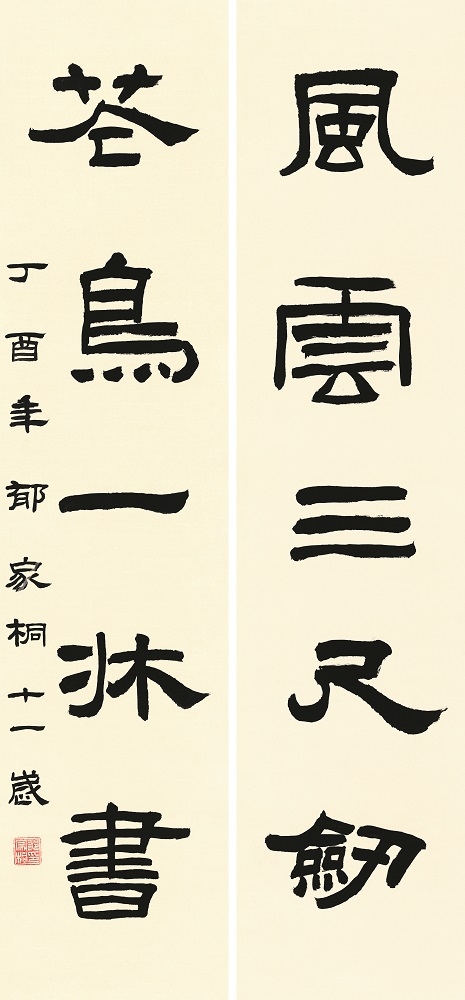 風雲三尺劒
花鳥一牀書
丁酉年郁家桐十一歲